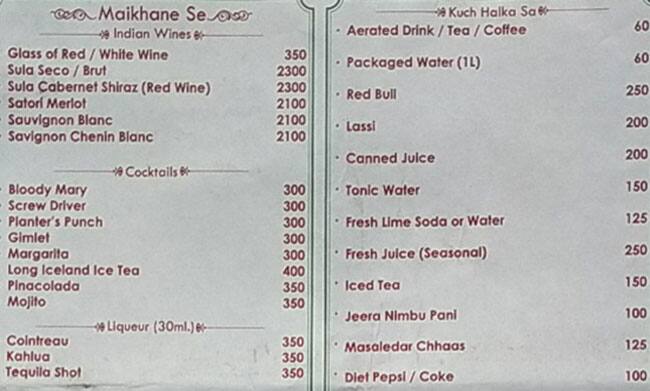 Maikhane Se
Indian Wines
Glass of Red / White Wine 350
Sula Seco / Brut 2300
Sula Cabernet Shiraz (Red Wine) 2300
Satori Merlot 2100
Sauvignon Blanc 2100
Savignon Chenin Blanc 2100
Cocktails
Bloody Mary 300
Screw Driver 300
Planter's Punch 300
Gimlet 300
Margarita 300
Long Iceland Ice Tea 400
Pinacolada 350
Mojito 350
Liqueur (30ml.)
Cointreau 350
Kahlua 350
Tequila Shot 350
Kuch Halka Sa
Aerated Drink / Tea / Coffee 60
Packaged Water (1L) 60
Red Bull 250
Lassi 200
Canned Juice 200
Tonic Water 150
Fresh Lime Soda or Water 125
Fresh Juice (Seasonal) 250
Iced Tea 150
Jeera Nimbu Pani 100
Masaledar Chhaas 125
Diet Pepsi / Coke 100